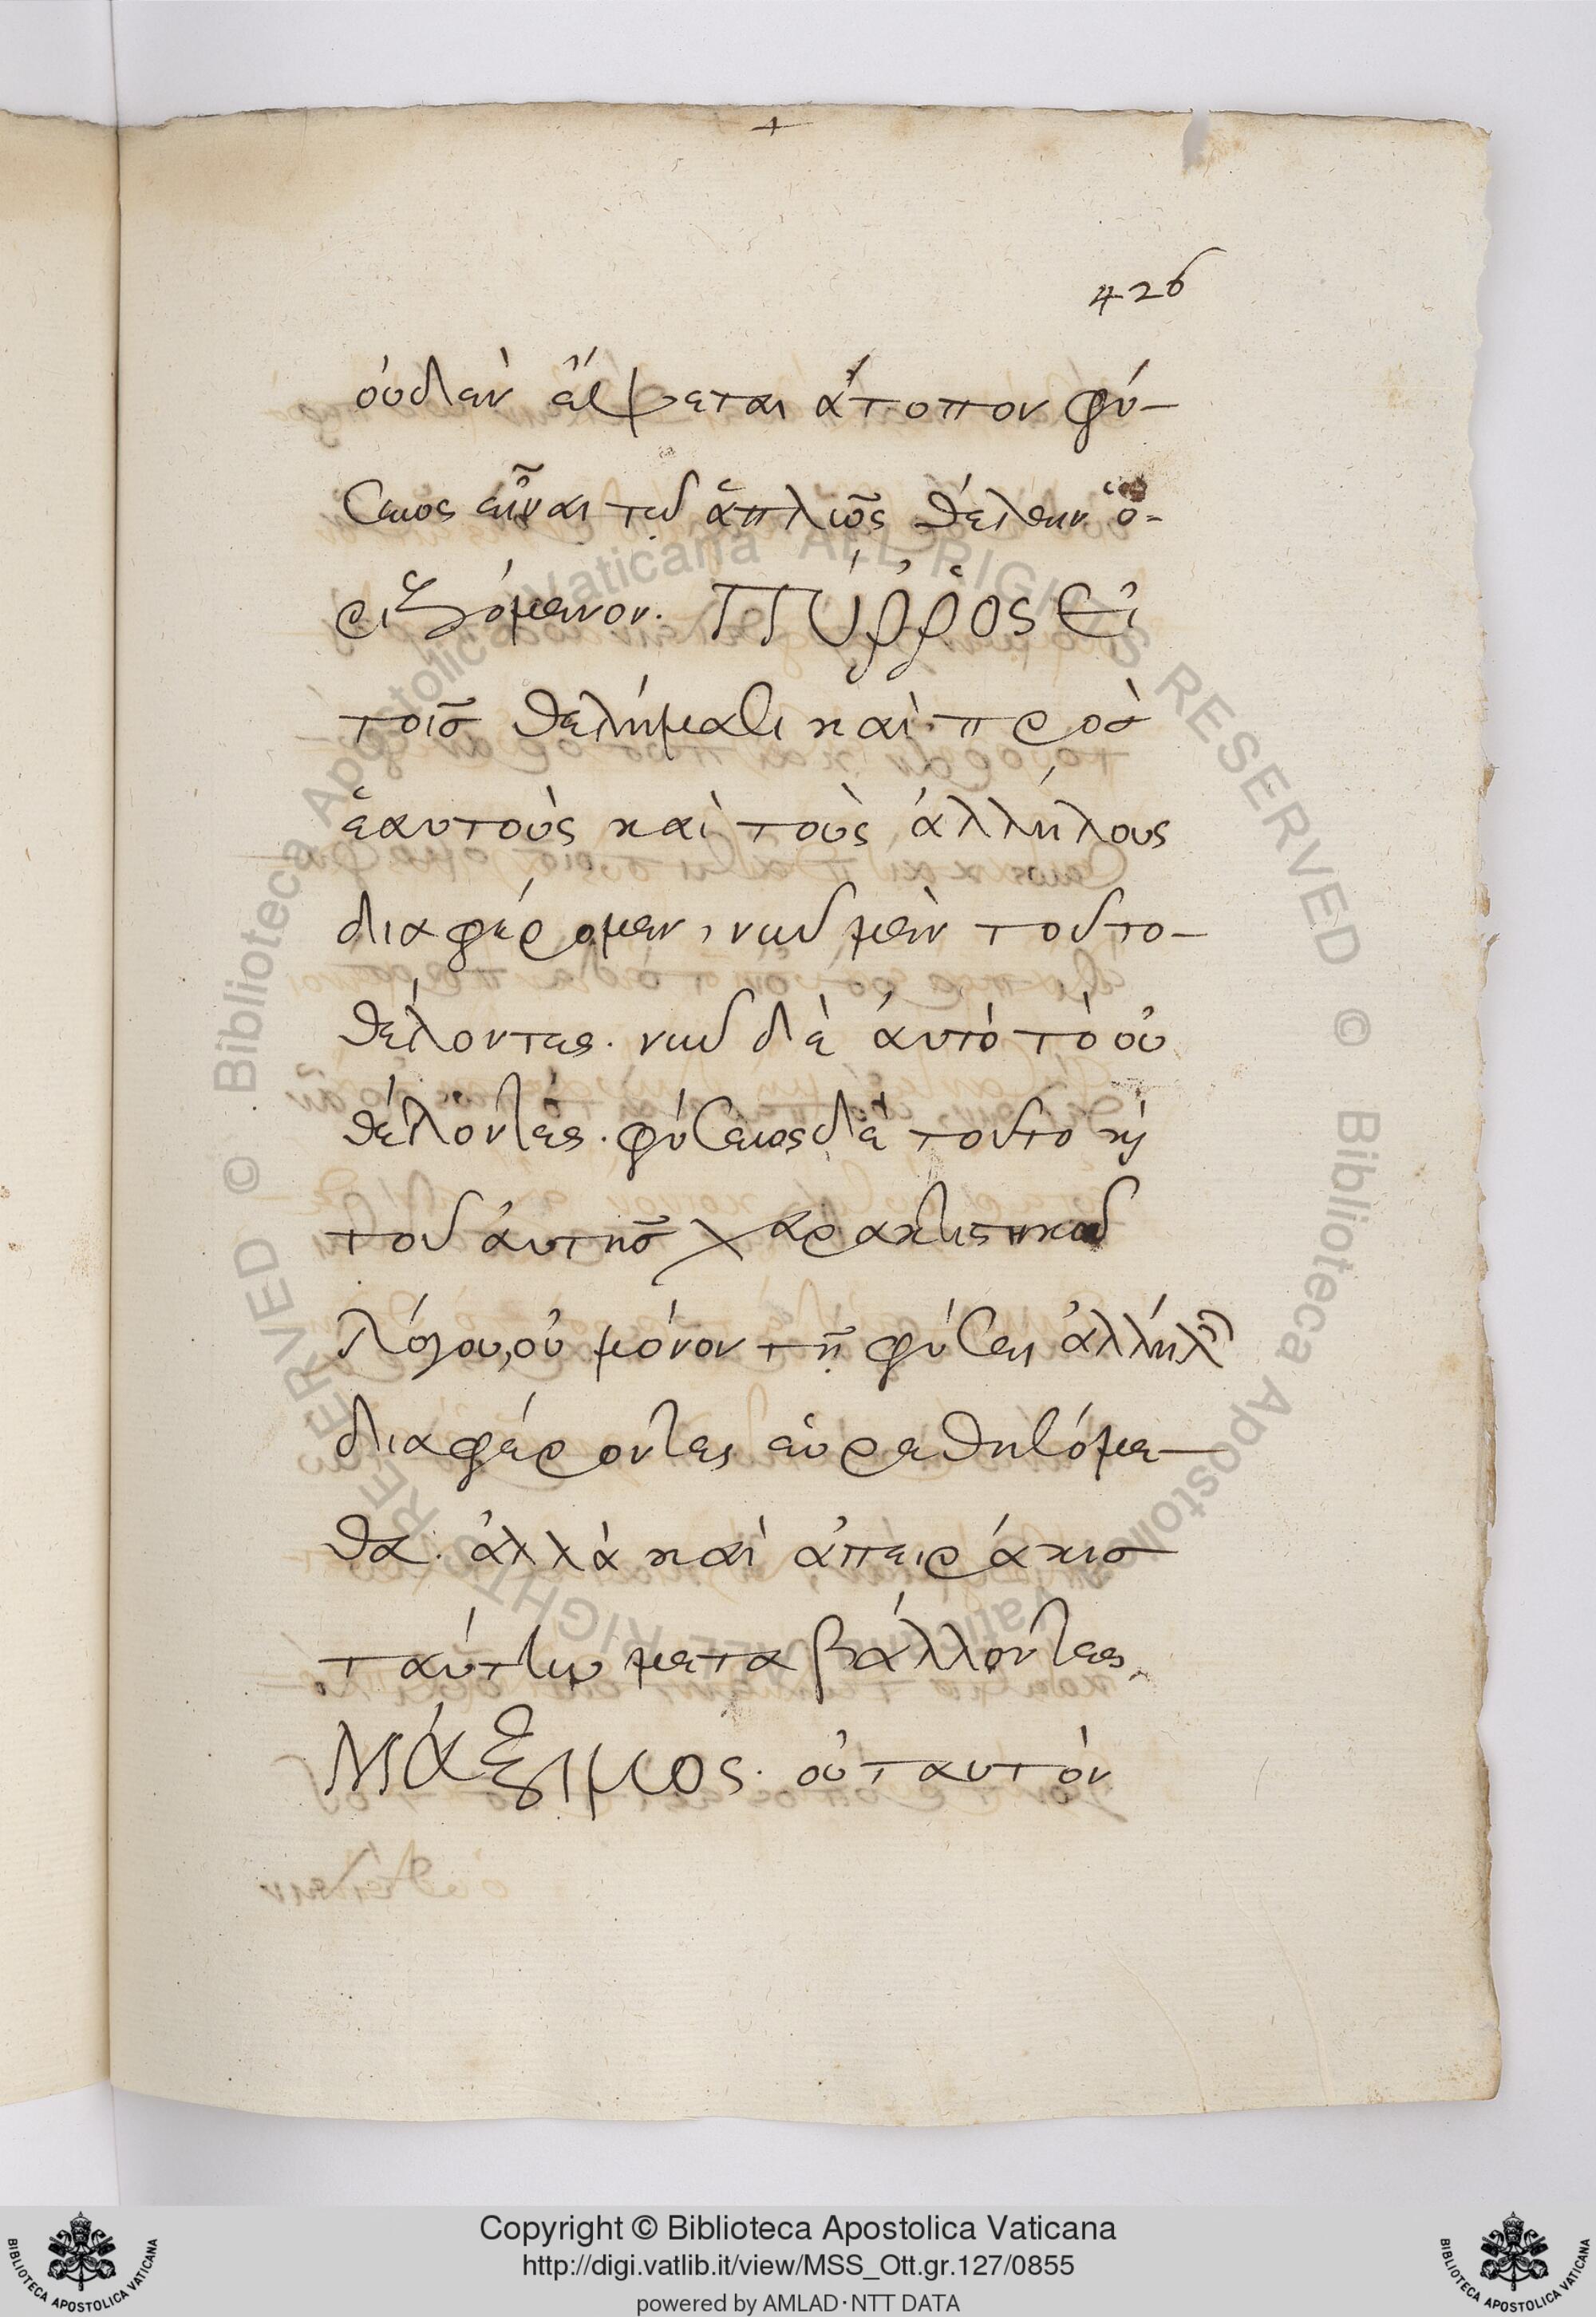 426
οὐδὲν ἕψεται ἄτοπον φύ-
σεως εἶναι τῷ ἁπλῶς θέλειν ὁ-
ριζόμενον. Πύῤῥος Εἰ
τοῖς θελήμασι καὶ πρὸς
ἑαυτοὺς καὶ τοὺς ἀλλήλους
διαφέρομεν, νῦν μὲν τοῦτο
θέλοντες. νῦν δὲ ἀυτὸ τὸ οὐ
θέλοντες. φύσεως δὲ τοῦτο κỳ
τοῦ ἀυτῆς χαρακτιστικοῦ
λόγου, οὐ μόνον τῇ φύσει ἀλλήλων
διαφέροντες εὑρεθησόμε-
θα. ἀλλὰ καὶ ἀπειράκις
ταύτην μεταβάλλοντες.
Μάξιμος. οὐ ταυτὸν
Copyright © Biblioteca Apostolica Vaticana
http://digi.vatlib.it/view/MSS_Ott.gr.127/0855
powered by AMLAD·NTT DATA
BIBLIOTECA APOSTOLICA VATICANA
BIBLIOTECA APOSTOLICA VATICANA
© Biblioteca Apostolica Vaticana ALL RIGHTS RESERVED © Biblioteca Apostolica Vaticana ALL RIGHTS RESERVED